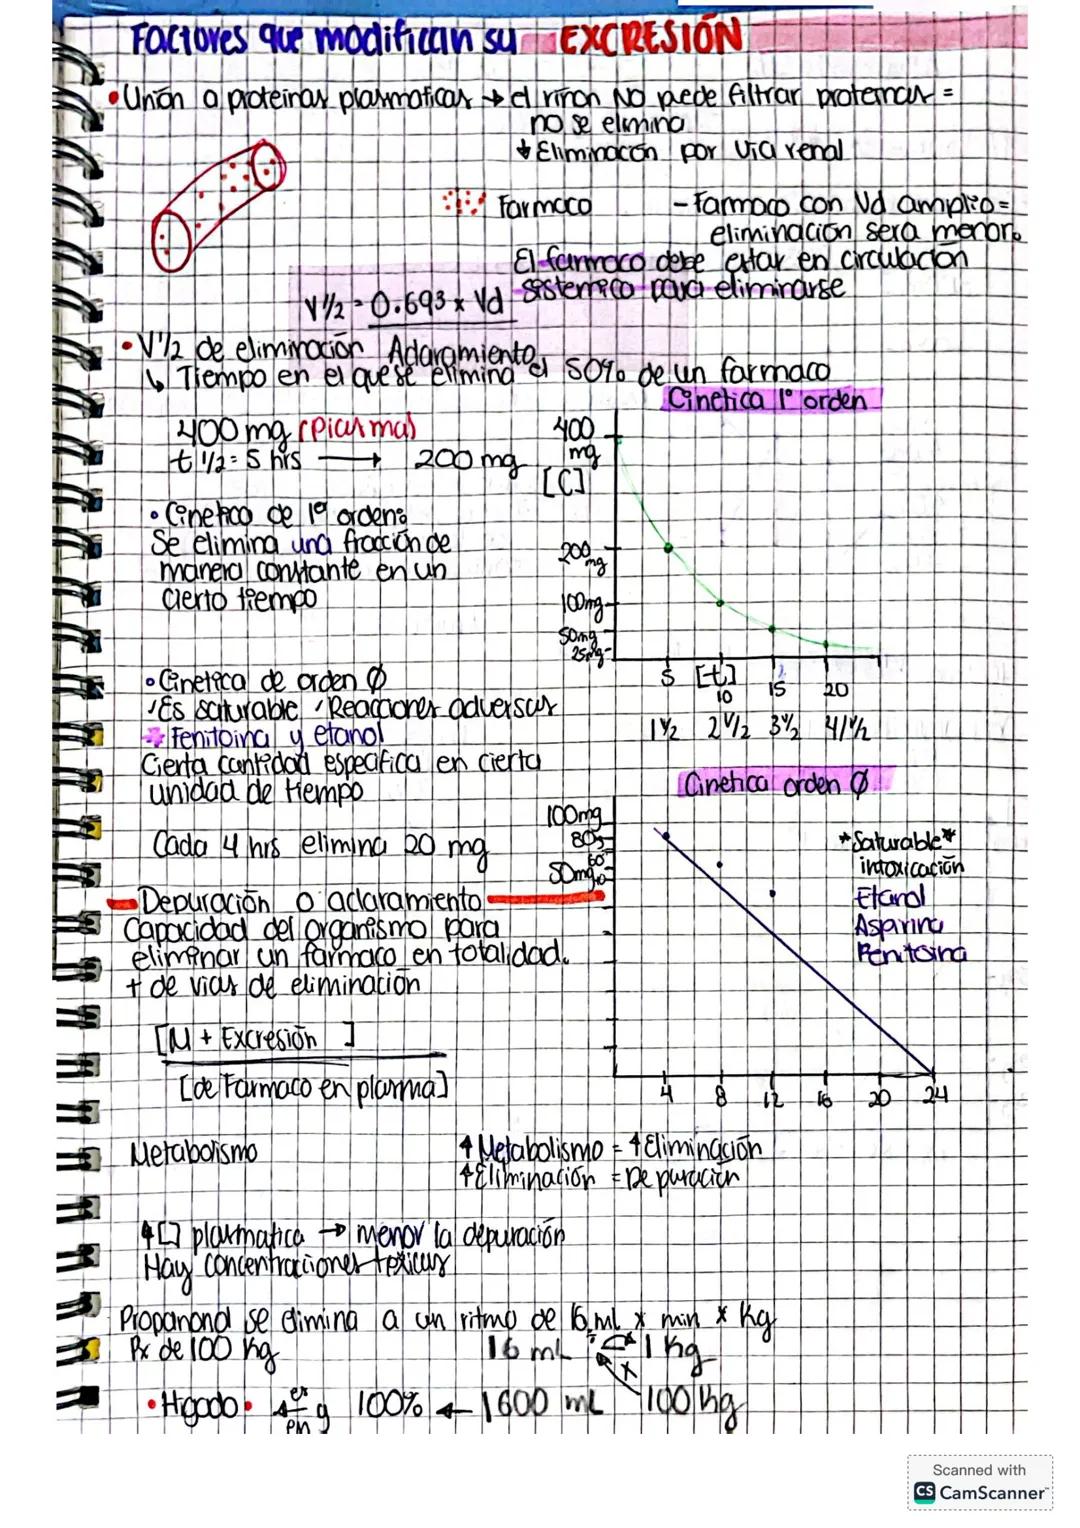 Factores que modifican su EXCRESIÓN
• Unión a proteinas plasmaticas → el riñon NO puede filtrar proteinas =
no se elimina
↓ Eliminación por via renal
Farmaco
- Farmaco con Vd amplio =
eliminación sera menor.
El farmaco debe estar en circulación
sistemica para eliminarse
V½ = 0.693 x Vd
Aclaramiento
• V½ de eliminación
↳ Tiempo en el que se elimina el 50% de un farmaco
Cinetica 1° orden
400 mg (Plasma)
t ½ = 5 hrs → 200 mg
400
mg
[C]
200 mg
100mg
50mg
25mg
5 [t] 10 15 20
1 ½ 2 ½ 3 ½ 4 ½
• Cinetica de 1° orden:
Se elimina una fracción de
manera constante en un
cierto tiempo
• Cinetica de orden Ø
Es saturable Reacciones adversas
Fenitoina y etanol
Cierta cantidad especifica en cierta
unidad de tiempo
Cada 4 hrs elimina 20 mg
Cinetica orden Ø
100mg
80
60
50mg
40
*Saturable*
intoxicación
Etanol
Aspirina
Fenitoina
4 8 12 16 20 24
Depuración o aclaramiento
Capacidad del organismo para
eliminar un farmaco en totalidad.
+ de vias de eliminación
[M + Excresión ]
[de Farmaco en plasma]
Metabolismo
↑ Metabolismo = ↑ Eliminación
↑ Eliminación = Depuración
↑ [] plasmatica → menor la depuración
Hay concentraciones toxicas
Propanonol se elimina a un ritmo de 16 mL x min x Kg
Px de 100 Kg
16 mL = 1 Kg
x
• Higado •
100% ← 1600 mL 100 Kg
Scanned with
CS CamScanner